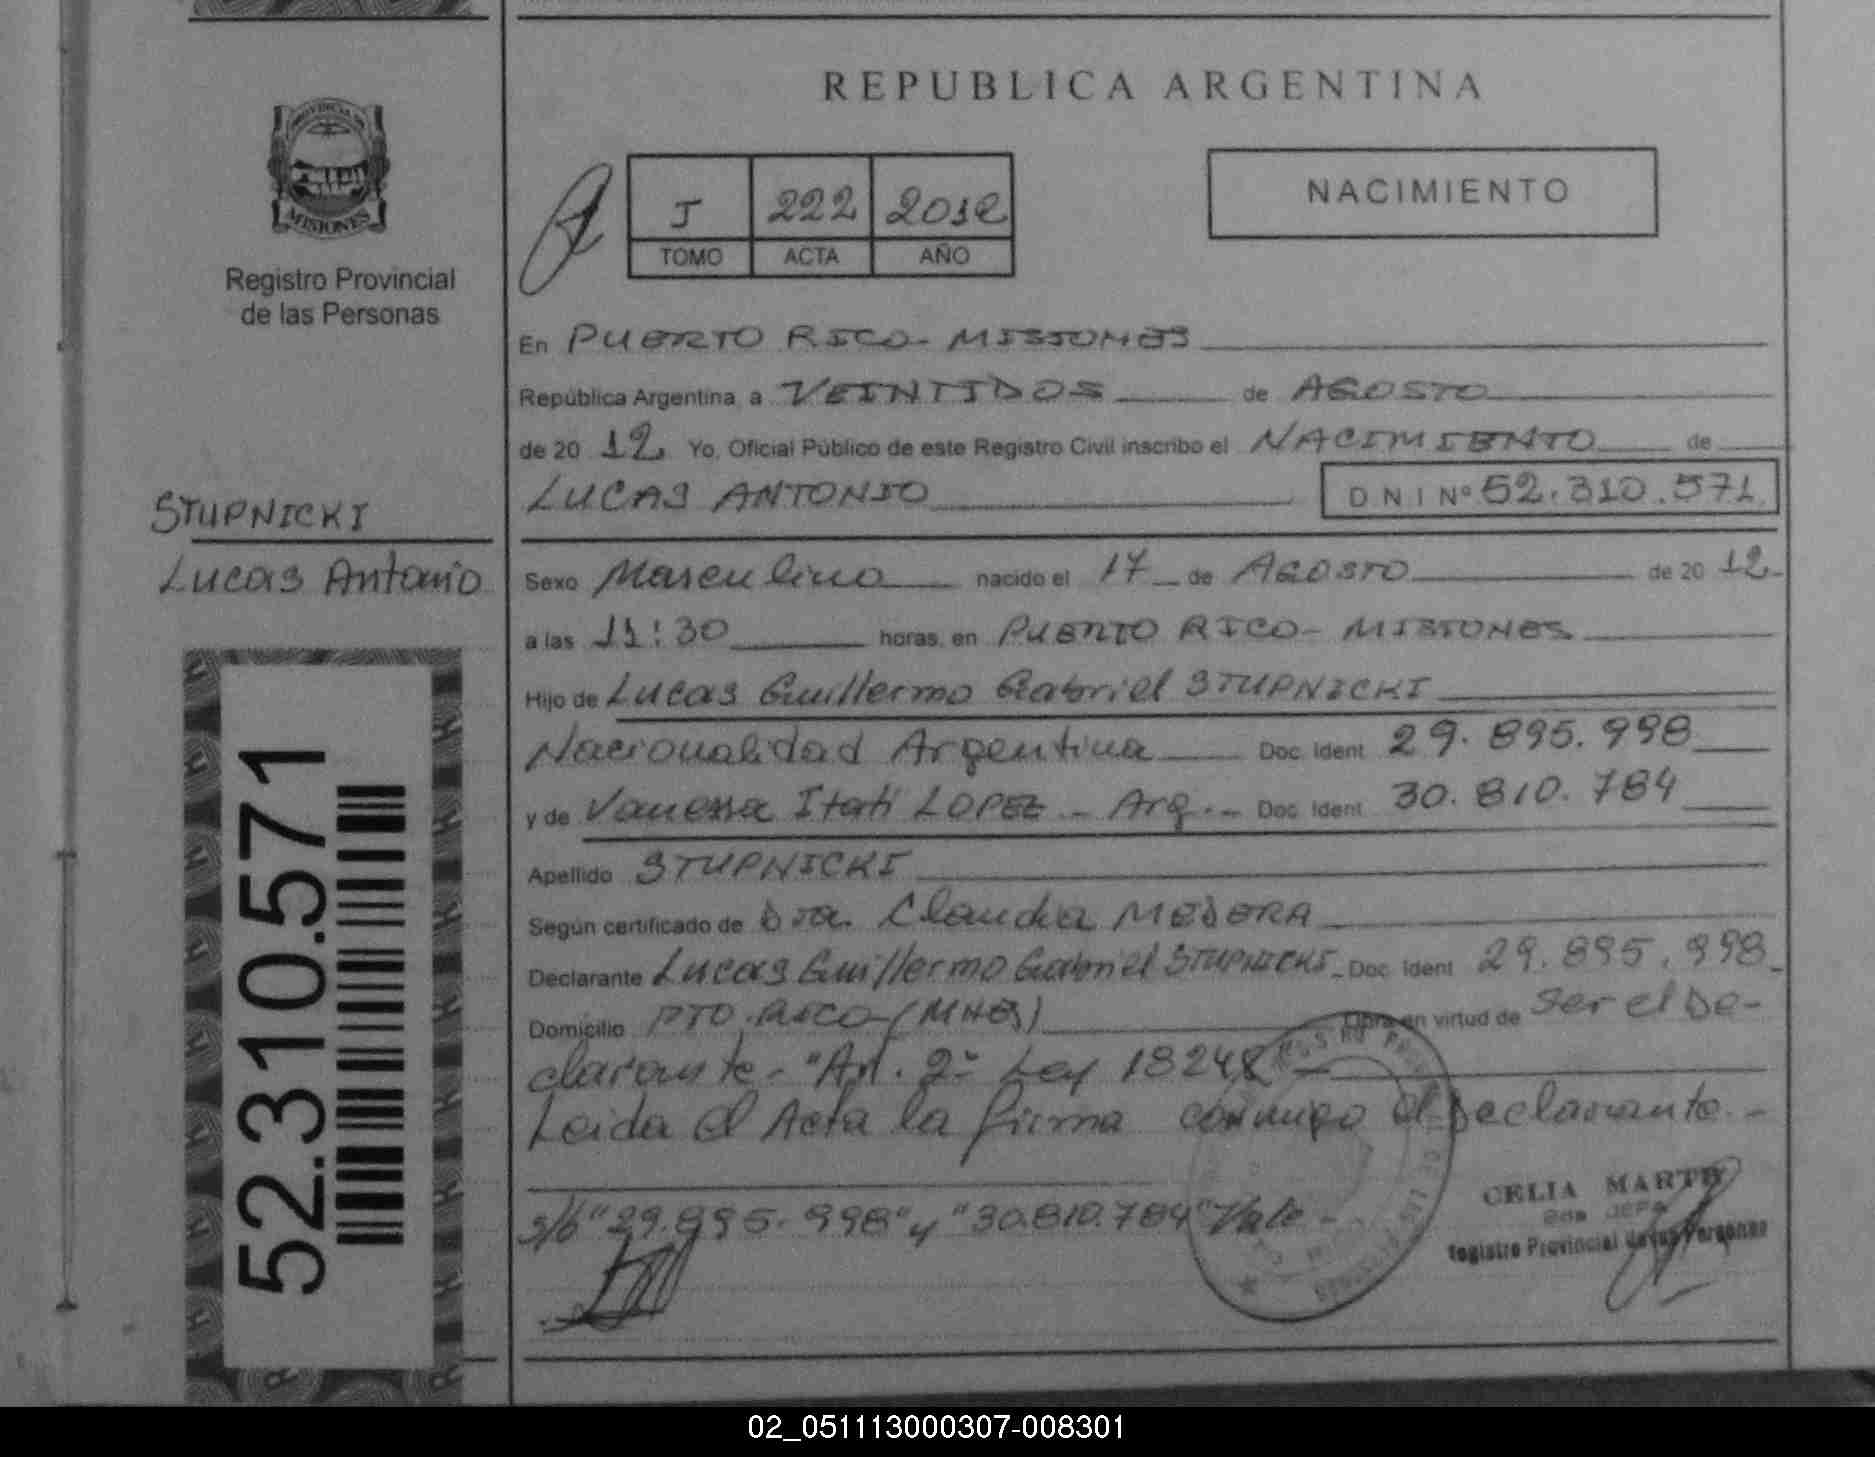 PROVINCIA DE
MISIONES
Registro Provincial
de las Personas
STUPNICKI
Lucas Antonio
52.310.571
REPUBLICA ARGENTINA
J 222 2012
TOMO ACTA AÑO
NACIMIENTO
En PUERTO RICO - MISIONES
República Argentina, a VEINTIDOS de AGOSTO
de 20 12 Yo, Oficial Público de este Registro Civil inscribo el NACIMIENTO de
LUCAS ANTONIO DNI Nº 52.310.571
Sexo Masculino nacido el 17 de AGOSTO de 20 12
a las 11:30 horas, en PUERTO RICO - MISIONES
Hijo de Lucas Guillermo Gabriel STUPNICKI
Nacionalidad Argentina Doc. Ident. 29.895.998
y de Vanessa Itatí LOPEZ - Arg. - Doc. Ident. 30.810.784
Apellido STUPNICKI
Según certificado de Dra. Claudia MEDERA
Declarante Lucas Guillermo Gabriel STUPNICKI - Doc. Ident. 29.895.998
Domicilio PTO. RICO - (MNES) Obra en virtud de Ser el De-
clarante - "Art. 2º Ley 18248 -
Leida el Acta la firma conmigo el Declarante -
s/b "29.895.998" y "30.810.784" Vale -
CELIA
Registro Provincial de las Personas
02_051113000307-008301